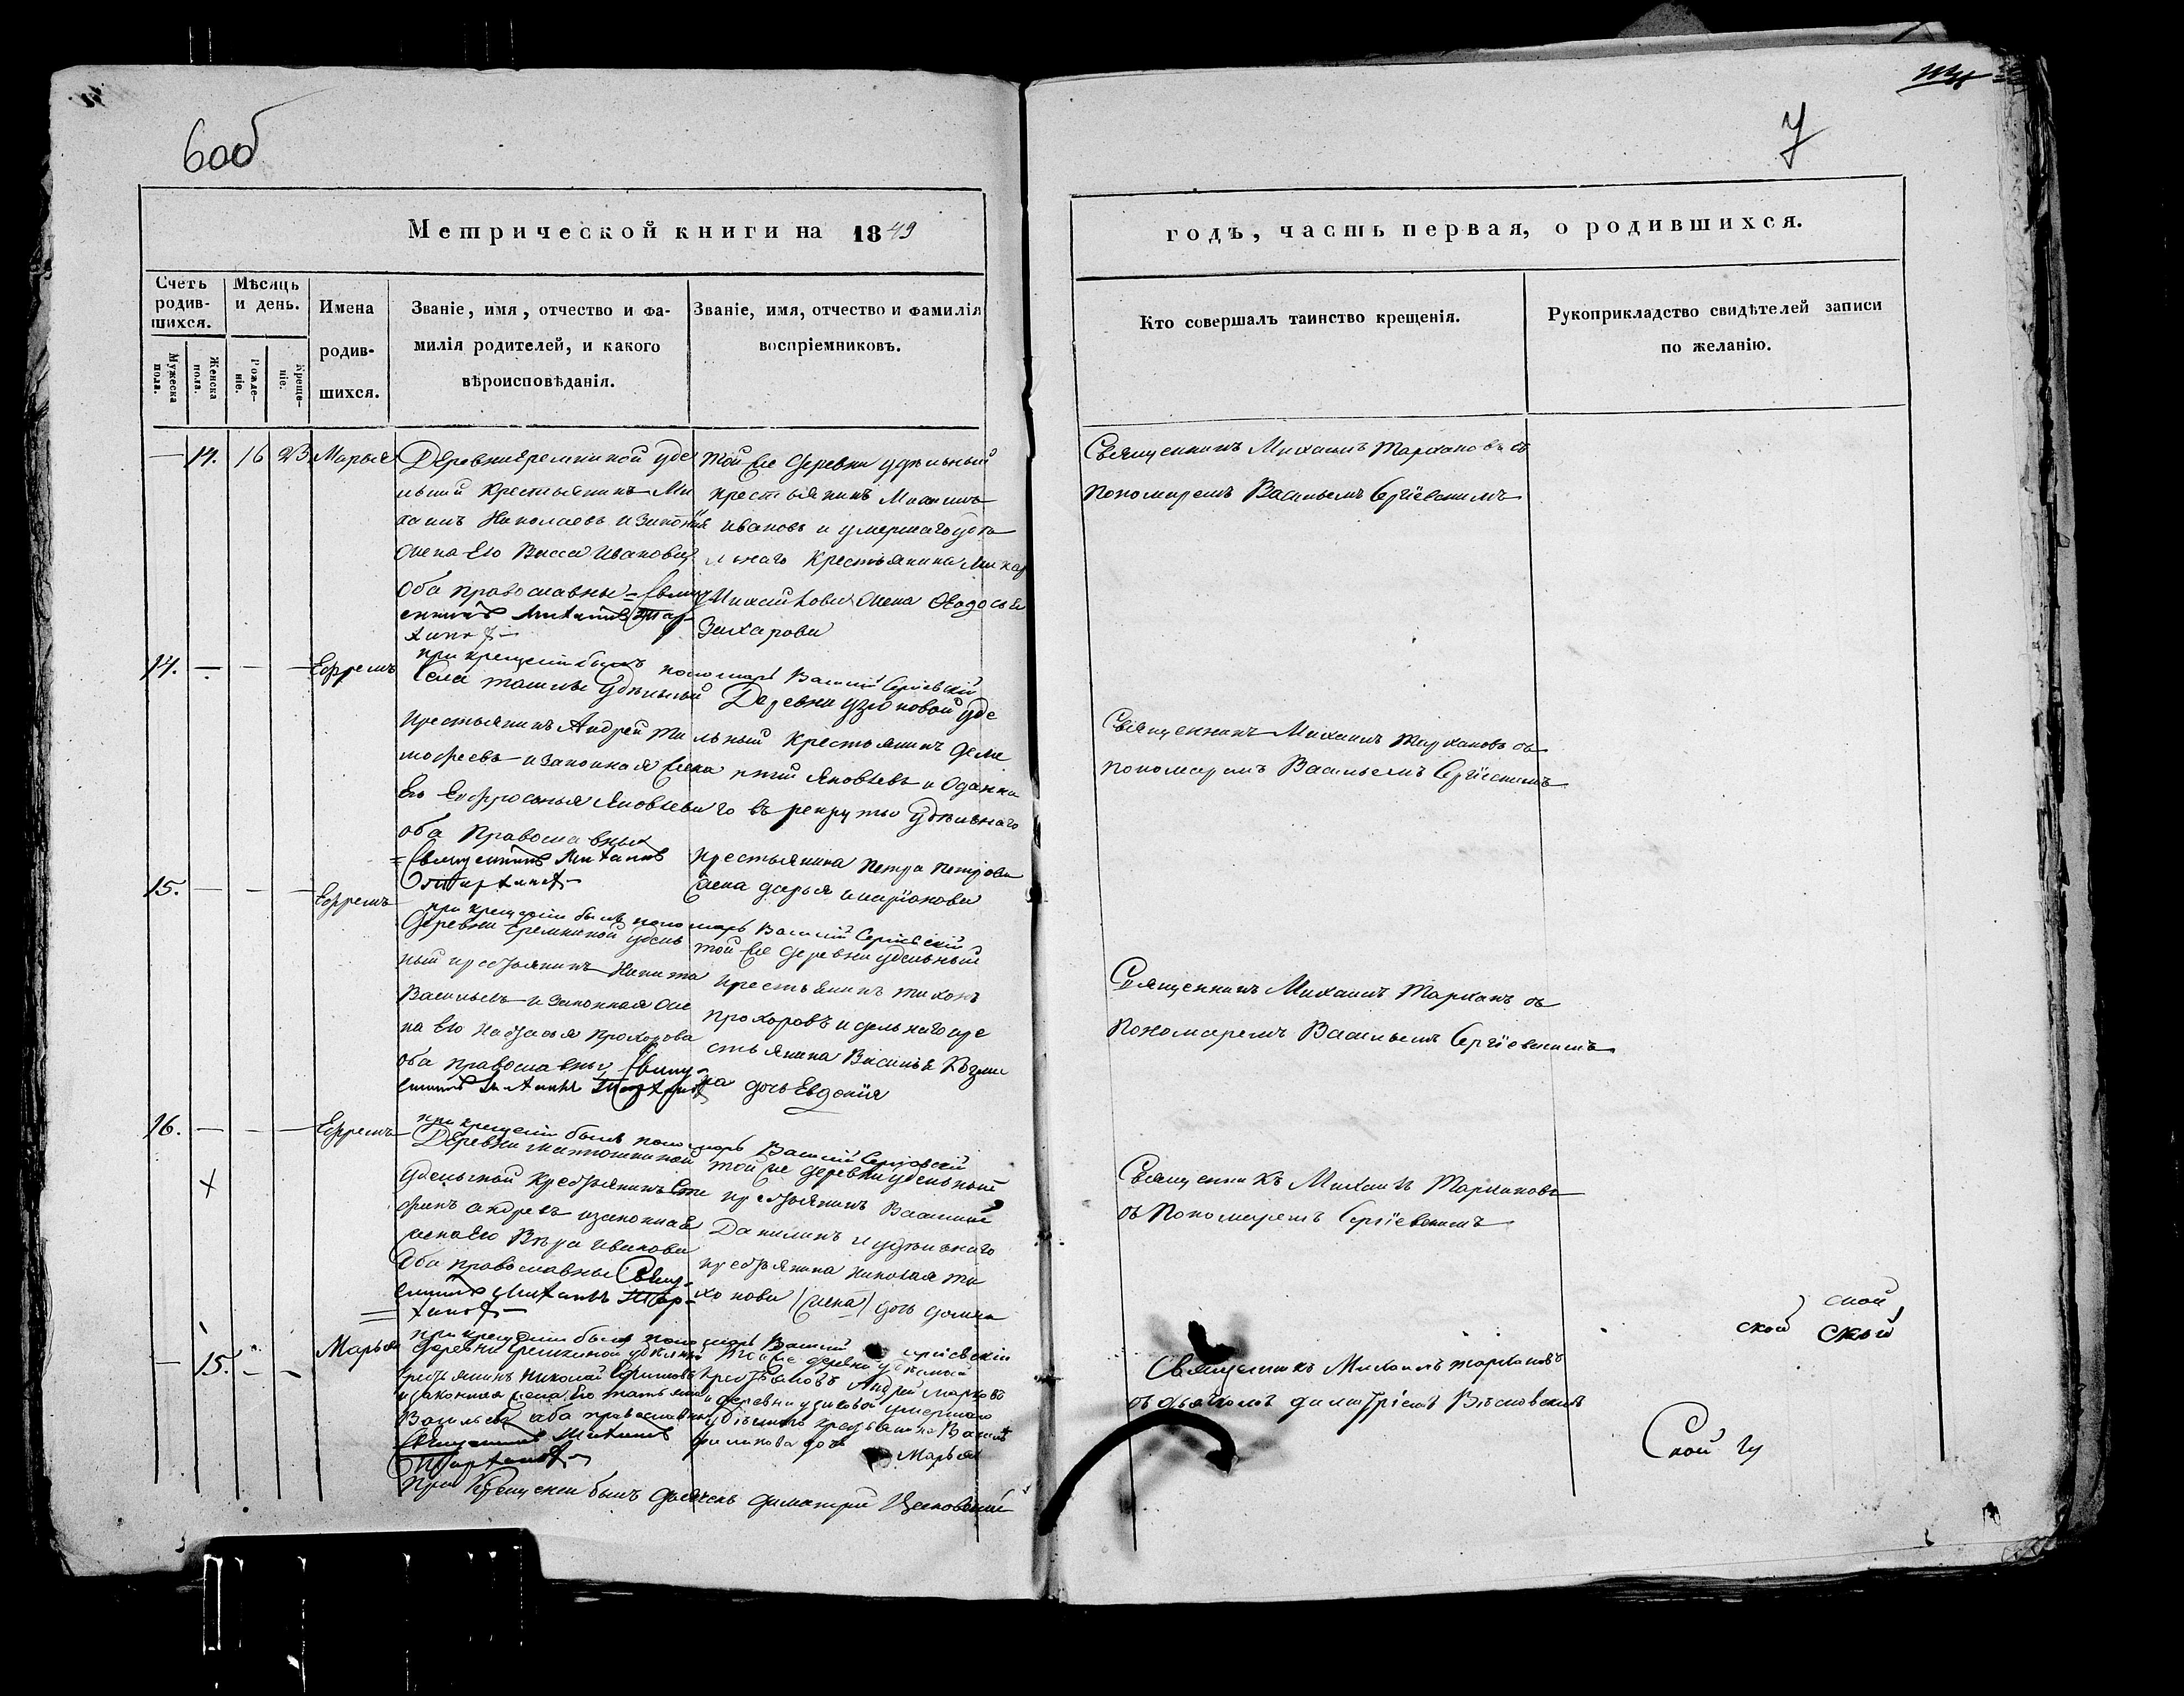 6об
7
Метрической книги на 1849
годъ, часть первая, о родившихся.
Счетъ родив-шихся.
Мужеска пола.
Женска пола.
Мѣсяцъ и день.
Рожде-ніе.
Креще-ніе.
Имена родив-шихся.
Званіе, имя, отчество и фа-
милія родителей, и какого
вѣроисповѣданія.
Званіе, имя, отчество и фамилія
воспріемниковъ.
Кто совершалъ таинство крещенія.
Рукоприкладство свидѣтелей записи
по желанію.
— 14. 16 23 Марья
Деревни Еремкиной уде
льный крестьянинъ Ми
хаилъ Николаевъ и законная
жена его Васса Иванова
оба православны = Свящ
енникъ Михаилъ Тар-
ханов
той же деревни удѣльный
крестьянинъ
Ивановъ и умершаго удѣ
льнаго крестьянина
жена Ѳеодосья
Захарова
Священникъ Михаилъ Тархановъ съ
пономаремъ Васильемъ Сергіевскимъ
при крещеніи былъ пономарь Василій Сергіевскій
14. — — — Ефремъ
Села удѣльный
крестьянинъ Андрей Ти
мофеевъ и законная жена
его Ефросинья Яковлева
оба православны
= Священникъ Михаилъ
Тарханов
Деревни Узюковой уде
льный крестьянинъ Деме
нтій Яковлевъ и отданна
го въ рекруты удѣльнаго
крестьянина Петра Петрова
жена Дарья
Священникъ Михаилъ Тархановъ съ
пономаремъ Васильемъ Сергіевскимъ
при крещеніи былъ пономарь Василій Сергіевскій
15. — — — Ефремъ
Деревни Еремкиной удель
ный крестьянинъ Никита
Васильевъ и законная же
на его Настасья Прохорова
оба православны, Свящ-
енникъ Михаилъ Тарханов
той же деревни удельный
крестьянинъ Тихонъ
Прохоровъ и дельнаго кре
стьянина Василья Козми
на дочь Евдокія
Священникъ Михаилъ Тарханъ съ
пономаремъ Васильемъ Сергіевскимъ
при крещеніи былъ пономарь Василій Сергіевскій
16. — — — Ефремъ
х
Деревни
удельной крестьянинъ Сте
фанъ Андревъ и законная
жена его Вѣра Иванова
оба православны Свящ-
енникъ Михаилъ Тар-
ханов
той же деревни удельный
крестьянинъ Василий
Данилинъ и удѣльнаго
крестьянина Николая Ти
хонова (жена) дочь Домна
Священникъ Михаилъ Тархановъ
съ пономаремъ Сергіевскимъ
при крещеніи былъ пономарь Василій Сергіевскій
— 15. — — Марья
деревни Еремкиной удѣльный
крестьянинъ Николай Ефимовъ
и законная жена его Татьяна
Васильева оба православны
Священникъ Михаилъ
Тарханов
той же деревни удѣльной
Андрей Марковъ
и деревни Узюковой умершаго
удѣльнаго крестьянина
Филипова дочь Марья
Священникъ Михаилъ Тархановъ
съ дьячкомъ Димитріемъ
при крещеніи былъ дьячекъ Димитрий
ской
ской
ской
Ской